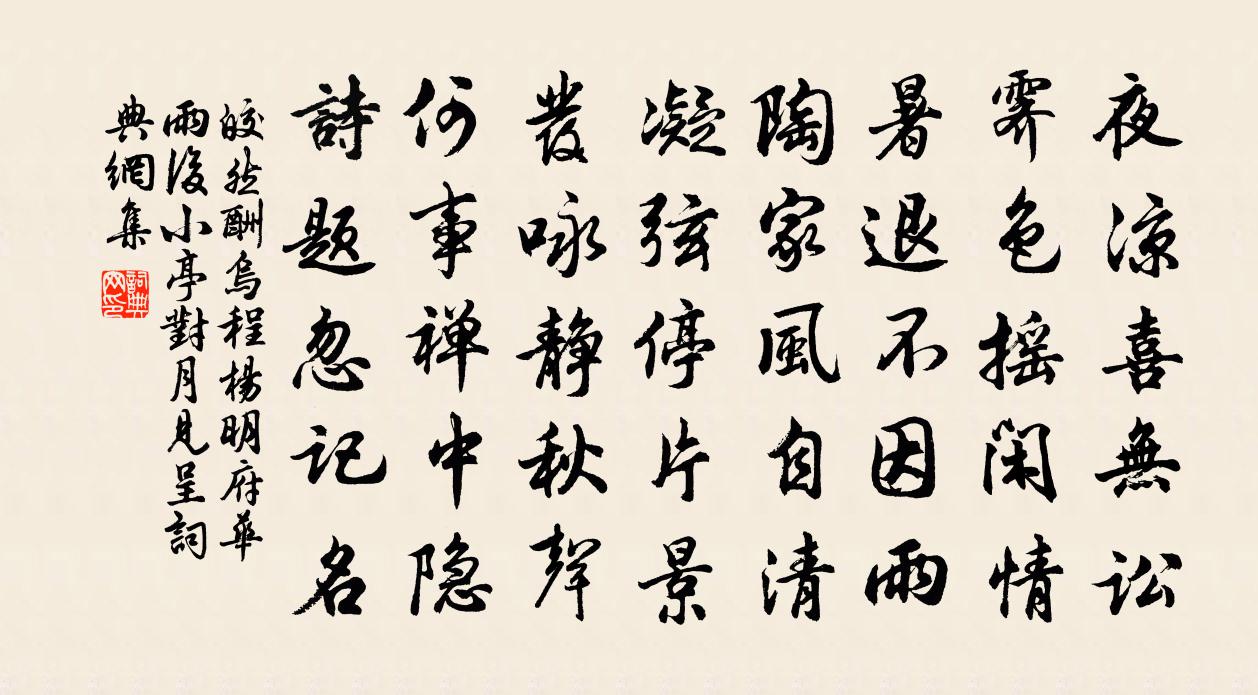 夜涼喜無訟
霽色搖閑情
暑退不因雨
陶家風自清
凝弦停片景
發咏静秋聲
何事禅中隐
詩題忽记名
皎然酬烏程楊明府華
雨後小亭對月見呈詞
典網集
詞典
网印